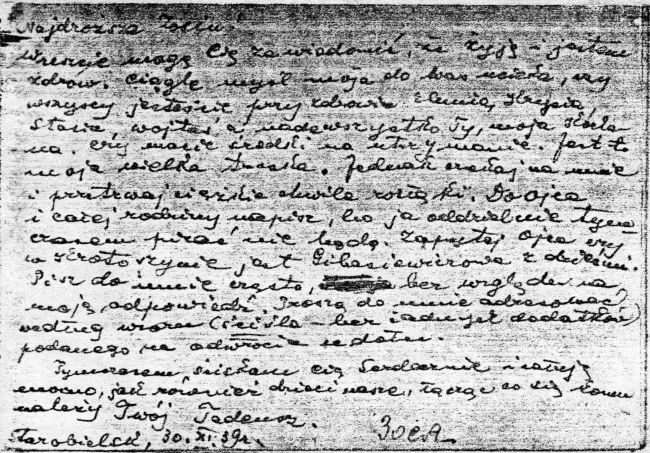 Najdroższa Zosiu!
Wreszcie mogę Cię zawiadomić, że żyję i jestem
zdrów. Ciągle myśl moja do Was ucieka, czy
wszyscy jesteście przy zdrowiu
Stasia, Wojtuś, a nadewszystko Ty, moja
na. Czy macie środki na utrzymanie. Jest to
moja wielka troska. Jednak czekaj na mnie
i przetrwaj ciężkie chwile rozłąki. Do Ojca
i całej rodziny napisz, bo ja oddzielnie tym
czasem pisać nie będę. Zapytaj Ojca czy
w Krotoszynie jest Gibasiewiczowa z dziećmi.
Pisz do mnie często, bez względu na
moją odpowiedź. Proszę do mnie adresować
według wzoru (ściśle – bez żadnych dodatków)
podanego na odwrocie
Tymczasem ściskam Cię serdecznie i całuję
mocno, jak również dzieci nasze, łączę co się komu
należy Twój Tadeusz.
Starobielsk, 30. XI. 39 r.